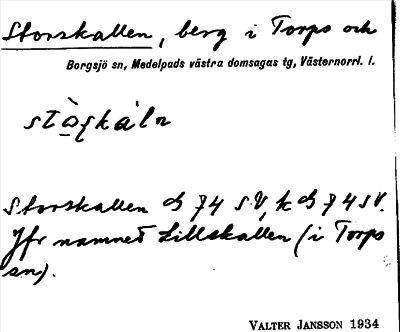 Storskallen, berg i Torps och
Borgsjö sn, Medelpads västra domsagas tg, Västernorrl. l.
Storskallen d 74 SV, k d 74 SV.
Jfr namnet Lillskallen (i Torps
sn).
VALTER JANSSON 1934